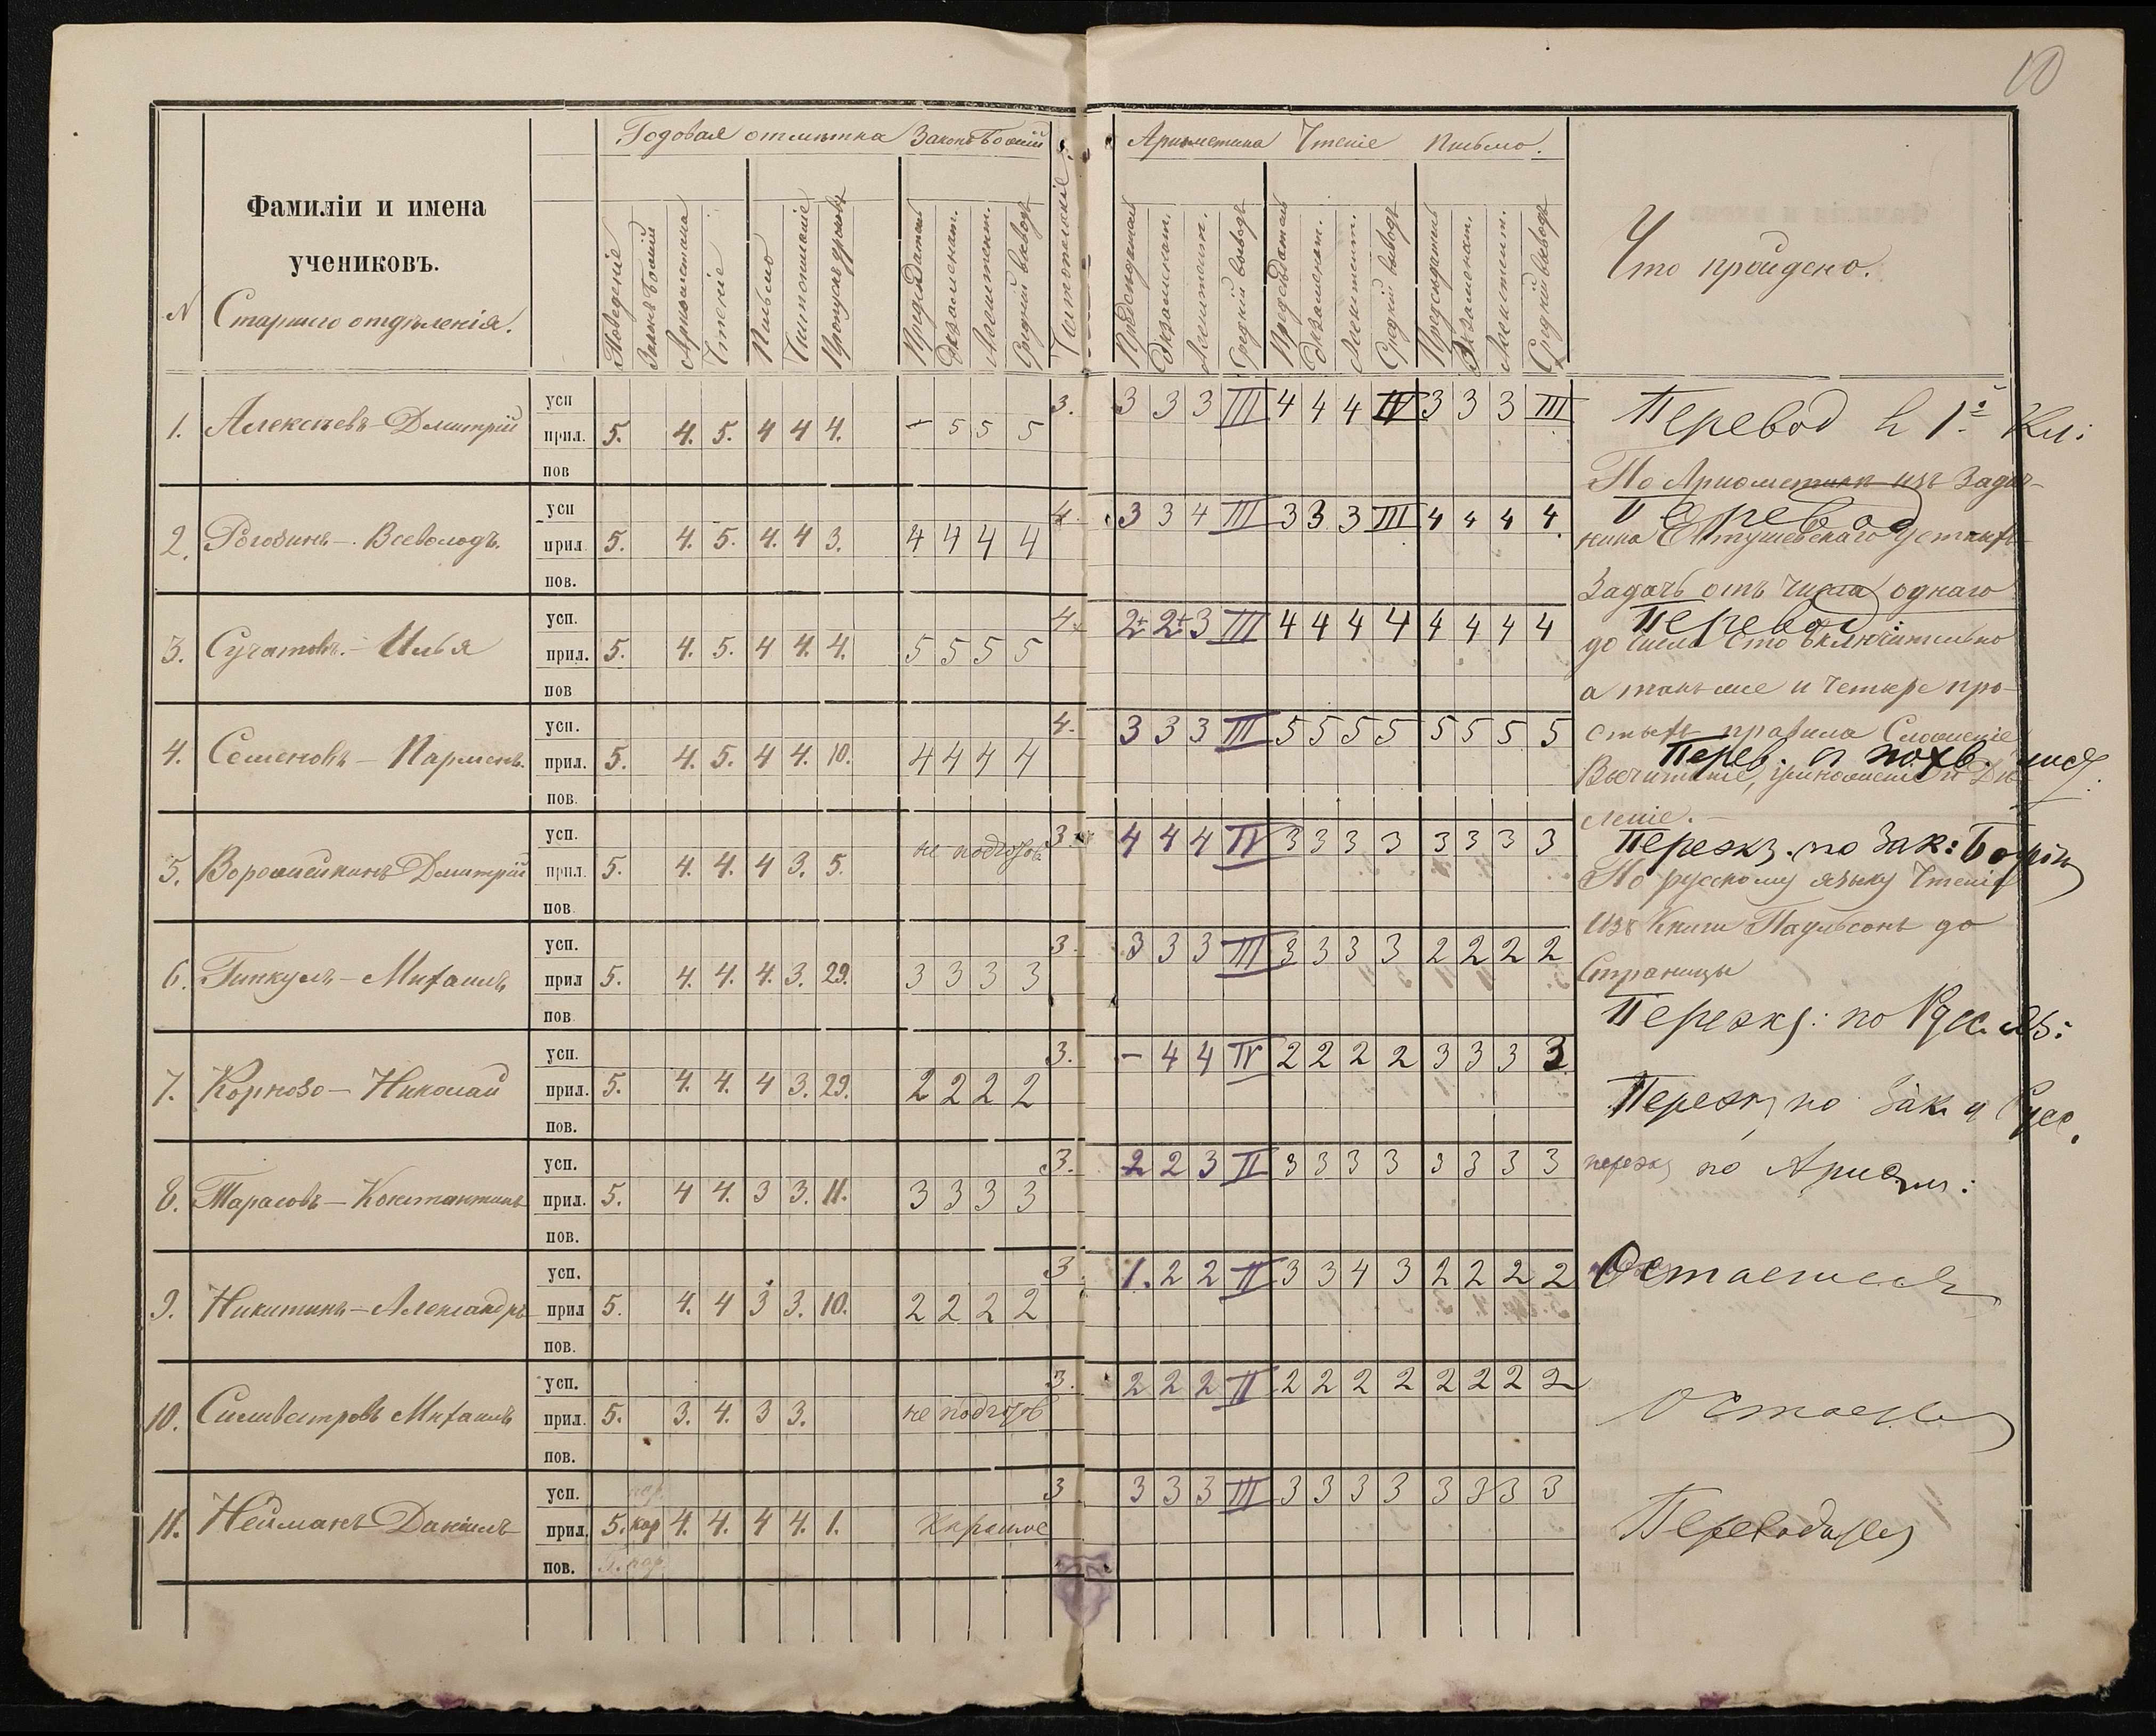 10
Годовая отмѣтка Законъ Божій
Ариѳметика Чтеніе Письмо.
Фамиліи и имена
учениковъ.
N Старшаго отдѣленія.
Поведеніе
Законъ Божій
Ариѳметика
Чтеніе
Письмо
Чистописаніе
Пропускъ уроковъ
Председатель
Экзаменат.
Ассистент.
Средній выводъ
Чистописаніе
Председатель
Экзаменат.
Ассистент.
Средній выводъ
Председатель
Экзаменат.
Ассистент.
Средній выводъ
Председатель
Экзаменат.
Ассистент.
Средній выводъ
Что пройдено.
усп 3. 3 3 3 III 4 4 4 IV 3 3 3 III
1. Алексѣевъ Дмитрій прил. 5. 4. 5. 4 4 4. – 5 5 5
Перевод в 1й Кл:
пов
По Ариѳметикѣ изъ задач-
усп 4. 3 3 4 III 3 3 3 III 4 4 4 4
Перевод
2. Рогозинъ – Всеволодъ. прил. 5. 4. 5. 4. 4 3. 4 4 4 4
ника Евтушевскаго устныхъ
пов.
Задачъ отъ числа однаго
усп. 4. 2+ 2+ 3 III 4 4 4 4 4 4 4 4
Перевод
3. Сучатовъ. – Илья прил. 5. 4. 5. 4 4. 4. 5 5 5 5
до числа Сто включительно
пов
а также и четыре про-
усп. 4. 3 3 3 III 5 5 5 5 5 5 5 5
стыхъ правила Сложеніе
4. Семеновъ – Парменъ. прил. 5. 4. 5. 4 4. 10. 4 4 4 4
Перев. с похв.
Вычитаніе, умноженіе и Дѣ-
пов.
леніе. –
усп. 3 4 4 4 IV 3 3 3 3 3 3 3 3
не подготов
5. Ворожейкинъ Дмитрій прил. 5. 4. 4. 4 3. 5.
Переэкз. по Зак: Божію
По русскому языку Чтеніе
пов.
Изъ Книги Паульсонъ до
усп. 3. 3 3 3 III 3 3 3 3 2 2 2 2
6. Гинкулъ – Михаилъ прил 5. 4. 4. 4. 3. 29. 3 3 3 3
Страницы
пов.
Переэкз: по Рус. яз:
усп. 3. – 4 4 IV 2 2 2 2 3 3 3 3
7. Корнозо – Николай прил. 5. 4. 4. 4 3. 29. 2 2 2 2
Переэкз по Зак. и Рус.
пов.
усп. 3. 2 2 3 II 3 3 3 3 3 3 3 3
переэкз по Ариѳм:
8. Тарасовъ – Константинъ прил. 5. 4 4. 3 3. 11. 3 3 3 3
пов.
усп. 3 1. 2 2 II 3 3 4 3 2 2 2 2
Остается
9. Никитинъ – Александръ прил 5. 4. 4 3 3. 10. 2 2 2 2
пов.
усп. 3. 2 2 2 II 2 2 2 2 2 2 2 2
10. Сильвестровъ Михаилъ прил. 5. 3. 4. 3 3. не подготов
Остается
пов.
усп. 3 3 3 3 III 3 3 3 3 3 3 3 3
11. Нейманъ Даніилъ прил. 5. 4. 4. 4 4. 1. Хорошое
Переводится
пов.